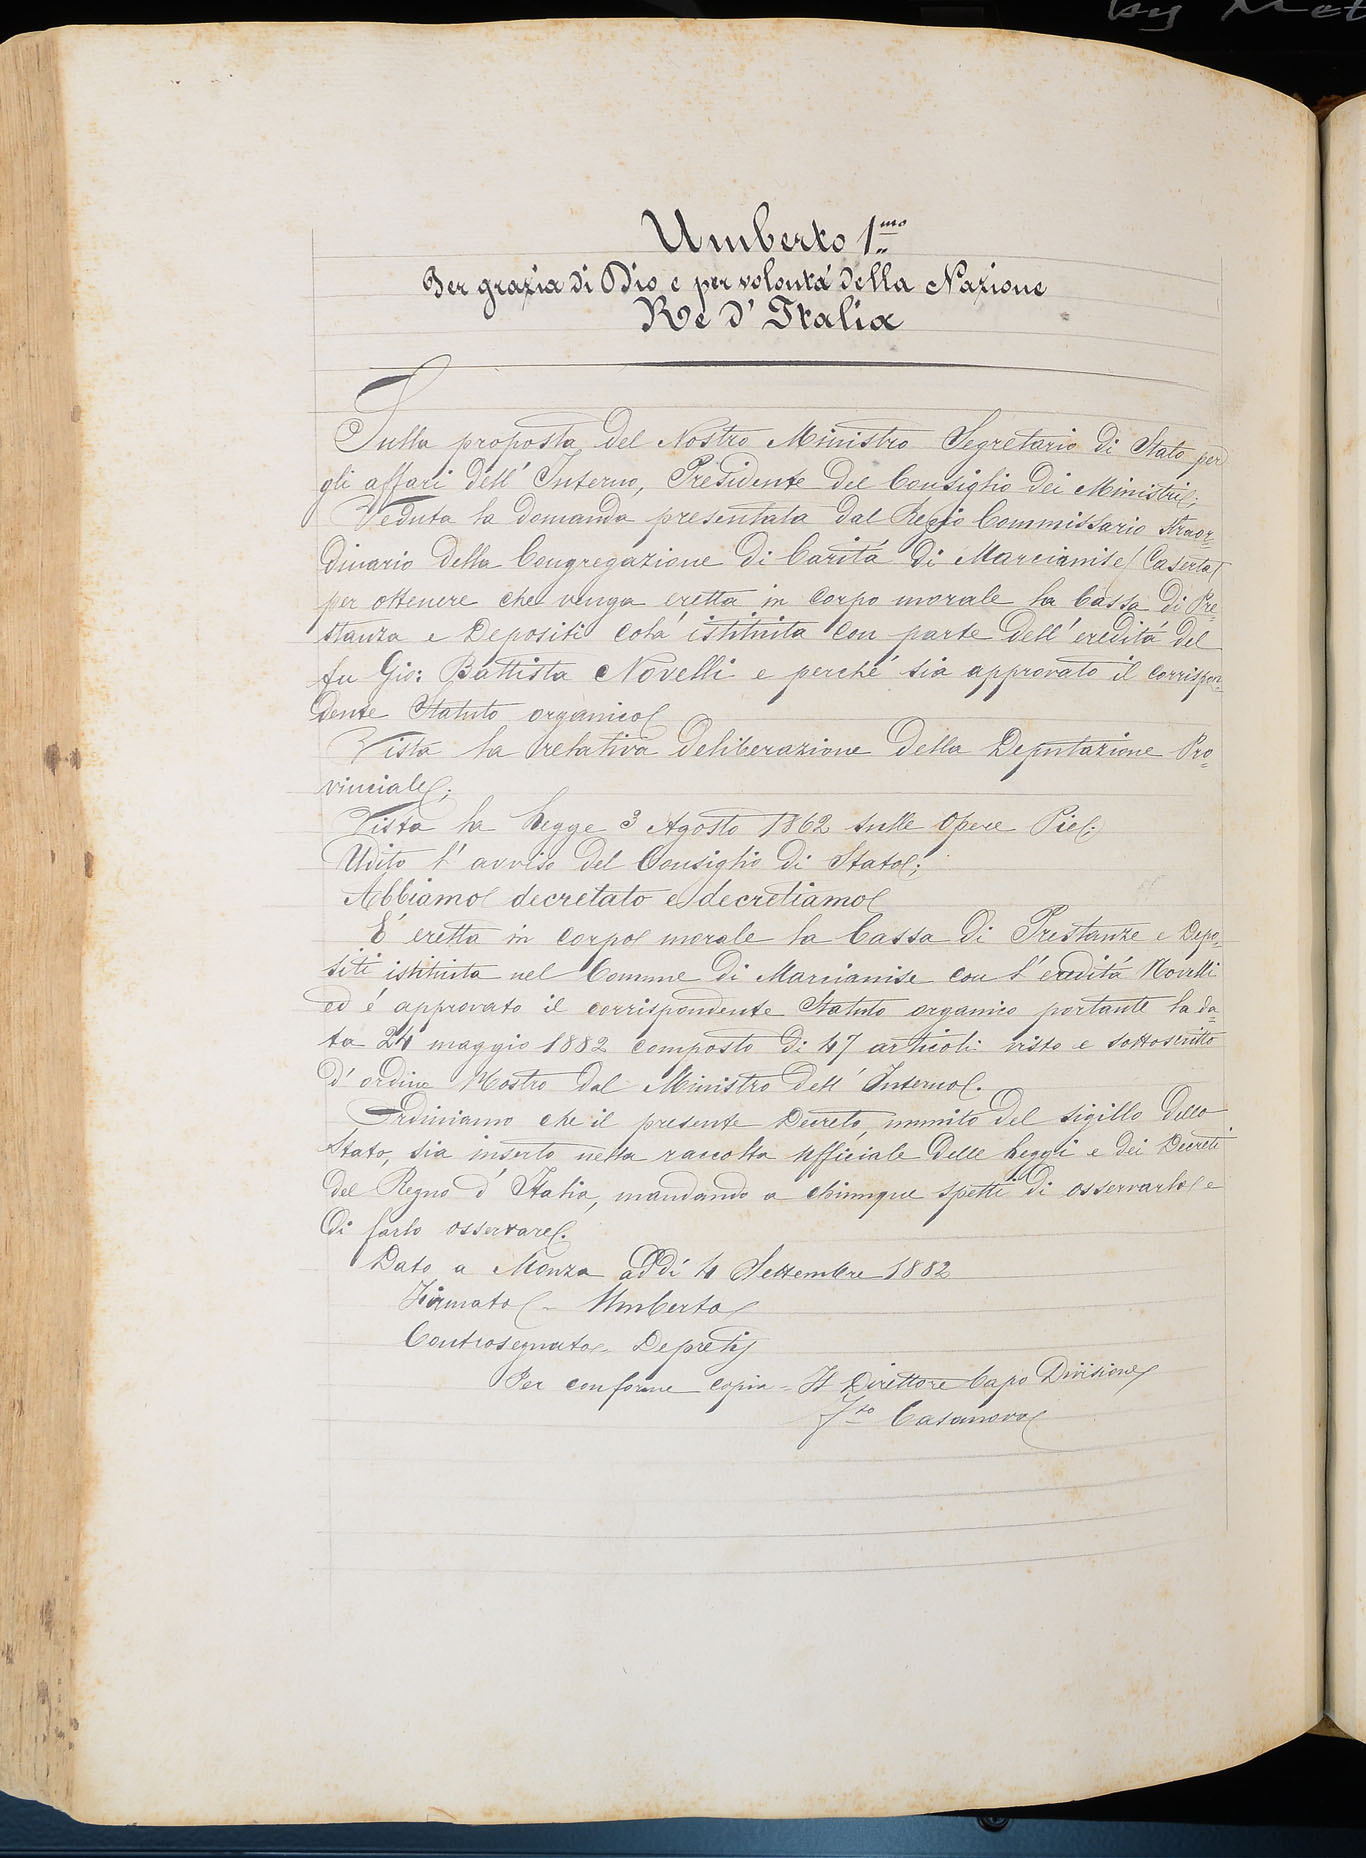 Umberto 1.mo
Per grazia di Dio e per volontà della Nazione
Re d'Italia
Sulla proposta del Nostro Ministro Segretario di Stato per
gli affari dell'Interno, Presidente del Consiglio dei Ministri;
Veduta la domanda presentata dal Regio Commissario straor=
dinario della Congregazione di Carità di Marcianise (Caserta)
per ottenere che venga eretta in corpo morale la Cassa di Pre=
stanza e Depositi colà istituita con parte dell'eredità del
fu Gio: Battista Novelli e perché sia approvato il corrispon=
dente Statuto organico
Vista la relativa deliberazione della Deputazione Pro=
vinciale;
Vista la legge 3 Agosto 1862 sulle Opere Pie;
Udito l'avviso del Consiglio di Stato;
Abbiamo decretato e decretiamo
É eretta in corpo morale la Cassa di Prestanze e Depo=
siti istituita nel Comune di Marcianise con l'eredità Novelli
ed é approvato il corrispondente Statuto organico portante la da=
ta 24 maggio 1882 composto di 47 articoli visto e sottoscritto
d'ordine Nostro dal Ministro dell'Interno.
Ordiniamo che il presente Decreto, munito del sigillo dello
Stato, sia inserto nella raccolta ufficiale delle leggi e dei Decreti
del Regno d'Italia, mandando a chiunque spetti di osservarlo e
di farlo osservare.
Dato a Monza addì 4 Settembre 1882
Firmato - Umberto
Controsegnato - Depretis
Per conforme copia - Il Direttore Capo Divisione
F.to Casanova
by